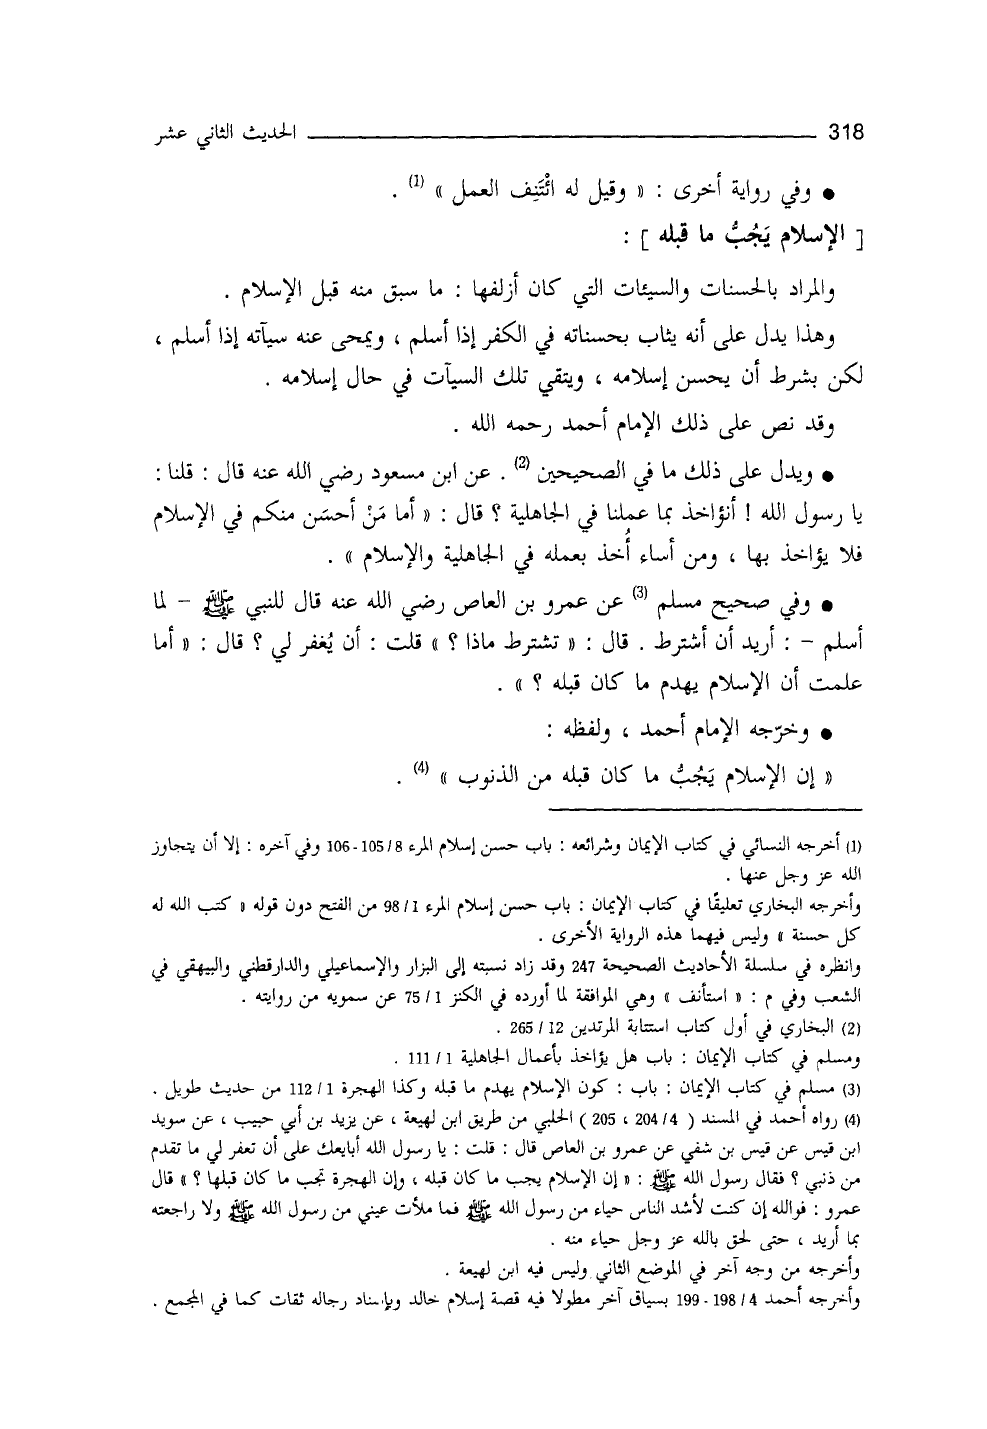 318 الحديث الثاني عشر
● وفي رواية أخرى : « وقيل له ائْتَنِف العمل » (1) .
[ الإسلام يَجُبُّ ما قبله ] :
والمراد بالحسنات والسيئات التي كان أزلفها : ما سبق منه قبل الإسلام .
وهذا يدل على أنه يثاب بحسناته في الكفر إذا أسلم ، ويمحى عنه سيآته إذا أسلم ،
لكن بشرط أن يحسن إسلامه ، ويتقي تلك السيآت في حال إسلامه .
وقد نص على ذلك الإمام أحمد رحمه الله .
● ويدل على ذلك ما في الصحيحين (2) . عن ابن مسعود رضي الله عنه قال : قلنا :
يا رسول الله ! أنؤاخذ بما عملنا في الجاهلية ؟ قال : « أما مَنْ أحسَن منكم في الإسلام
فلا يؤاخذ بها ، ومن أساء أُخذ بعمله في الجاهلية والإسلام » .
● وفي صحيح مسلم (3) عن عمرو بن العاص رضي الله عنه قال للنبي ﷺ – لما
أسلم – : أريد أن أشترط . قال : « تشترط ماذا ؟ » قلت : أن يُغفر لي ؟ قال : « أما
علمت أن الإسلام يهدم ما كان قبله ؟ » .
● وخرّجه الإمام أحمد ، ولفظه :
« إن الإسلام يَجُبُّ ما كان قبله من الذنوب » (4) .
(1) أخرجه النسائي في كتاب الإيمان وشرائعه : باب حسن إسلام المرء 8/105-106 وفي آخره : إلا أن يتجاوز
الله عز وجل عنها .
وأخرجه البخاري تعليقًا في كتاب الإيمان : باب حسن إسلام المرء 1/98 من الفتح دون قوله « كتب الله له
كل حسنة » وليس فيهما هذه الرواية الأخرى .
وانظره في سلسلة الأحاديث الصحيحة 247 وقد زاد نسبته إلى البزار والإسماعيلي والدارقطني والبيهقي في
الشعب وفي م : « استأنف » وهي الموافقة لما أورده في الكنز 1/75 عن سمويه من روايته .
(2) البخاري في أول كتاب استتابة المرتدين 12/265 .
ومسلم في كتاب الإيمان : باب هل يؤاخذ بأعمال الجاهلية 1/111 .
(3) مسلم في كتاب الإيمان : باب : كون الإسلام يهدم ما قبله وكذا الهجرة 1/112 من حديث طويل .
(4) رواه أحمد في المسند ( 4/204 ، 205 ) الحلبي من طريق ابن لهيعة ، عن يزيد بن أبي حبيب ، عن سويد
ابن قيس عن قيس بن شفي عن عمرو بن العاص قال : قلت : يا رسول الله أبايعك على أن تعفر لي ما تقدم
من ذنبي ؟ فقال رسول الله ﷺ : « إن الإسلام يجب ما كان قبله ، وإن الهجرة تجب ما كان قبلها ؟ » قال
عمرو : فوالله إن كنت لأشد الناس حياء من رسول الله ﷺ فما ملأت عيني من رسول الله ﷺ ولا راجعته
بما أريد ، حتى لحق بالله عز وجل حياء منه .
وأخرجه من وجه آخر في الموضع الثاني وليس فيه ابن لهيعة .
وأخرجه أحمد 4/198-199 بسياق آخر مطولا فيه قصة إسلام خالد وبإسناد رجاله ثقات كما في المجمع .